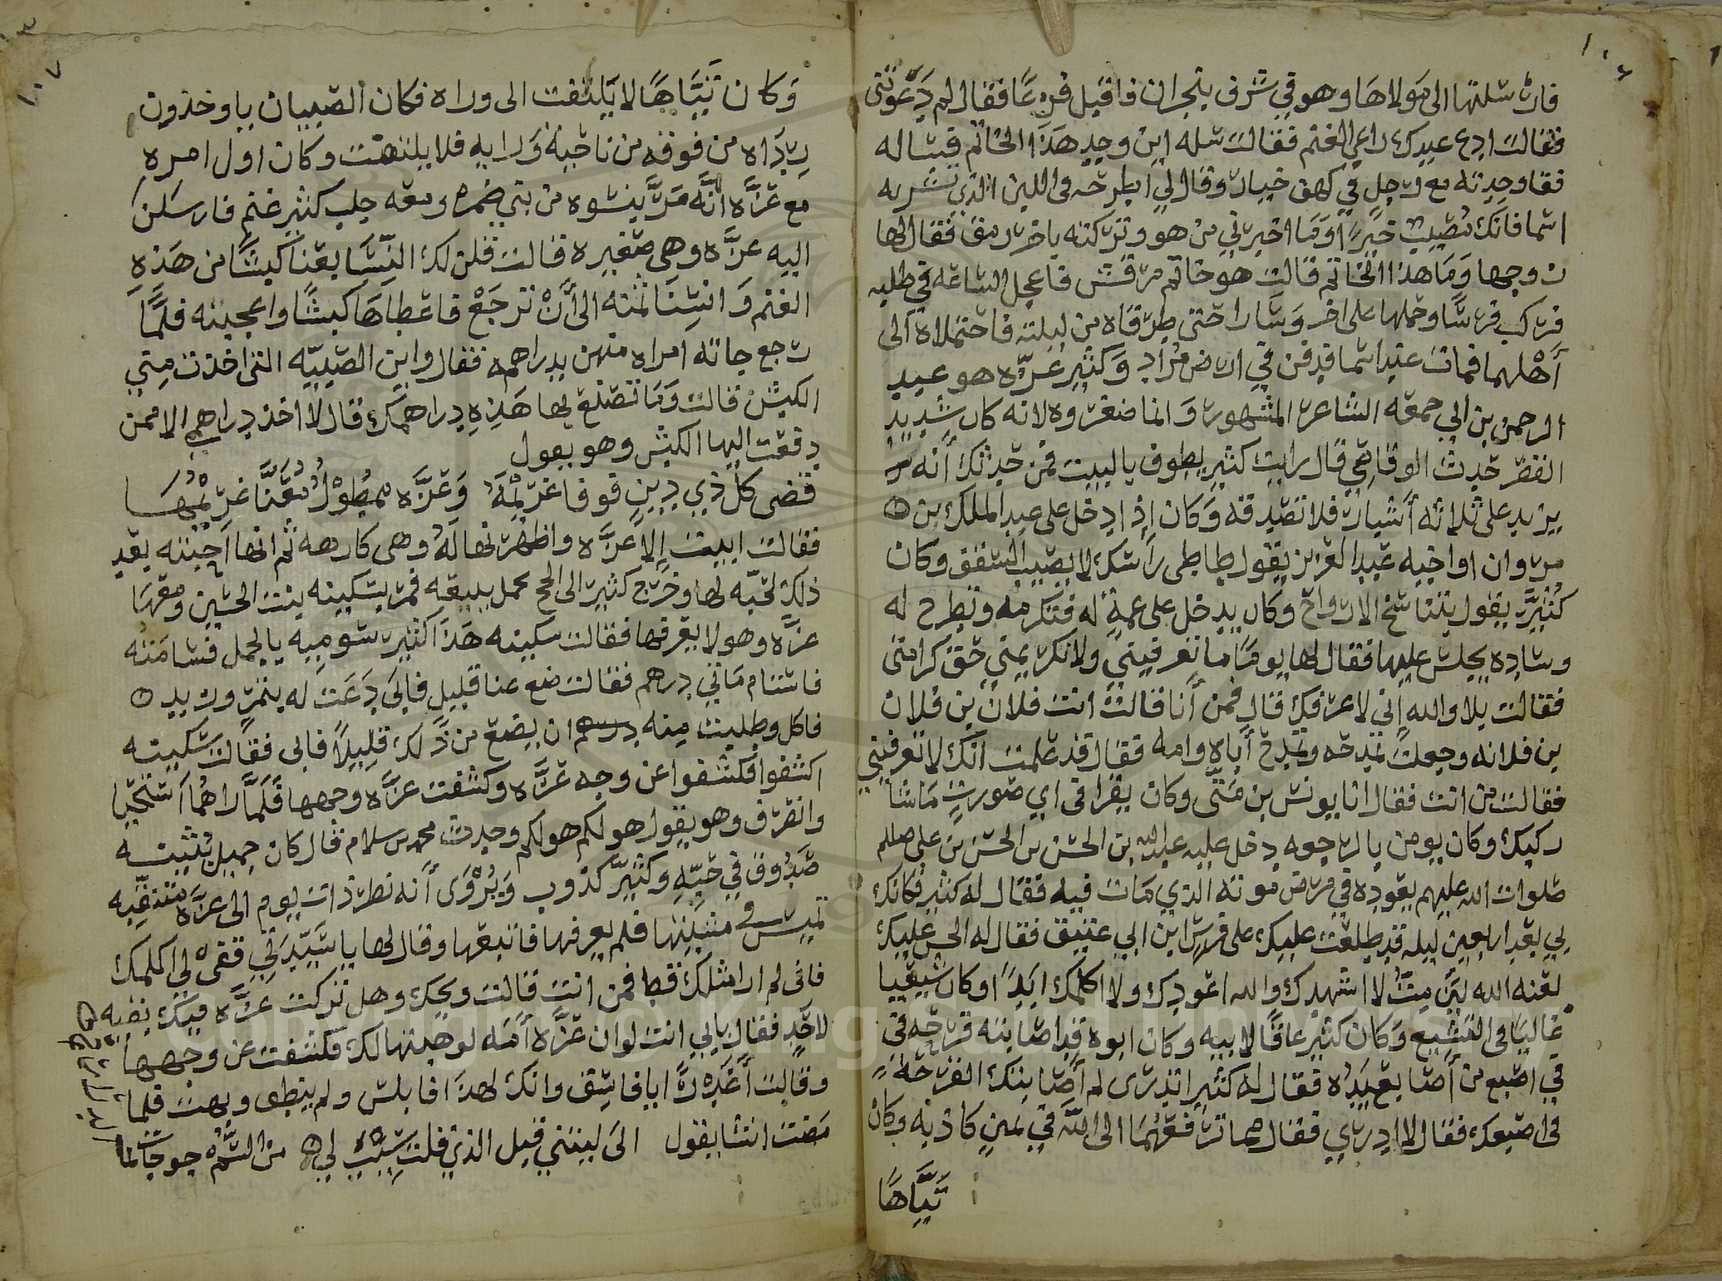 فارسلتها الى مولاها وهو في شرف بنجران فاقبل فزعا فقال لم دعوتني
فقالت ادع عبدك راعي الغنم فقالت سله اين وجد هذا الخاتم فساله
فقا وجدته مع رجل في كهف خبان وقال لي اطرحه في اللبن الذي تشربه
اسما فانك مصيب خيرا وما اخبرني من هو وتركته باخر رمق فقال لها
زوجها وما هذا الخاتم قالت هو خاتم مرقش فاعجل الساعه في طلبه
فركب فرسا وحملها على اخر وسارا حتى طرقاه من ليلته فاحتملاه الى
اهلهما فمات عند اسما فدفن في ارض مراد وكثير عزه هو عبد
الرحمن بن ابي جمعه الشاعر المشهور وانما صغروه لانه كان شديد
القصر حدث الوقاصي قال رايت كثير يطوف بالبيت فمن حدثك انه
يزيد على ثلاثه اشبار فلا تصدقه وكان اذا دخل على عبد الملك بن
مروان او اخيه عبد العزيز يقول طاطي راسك لا يصيب السقف وكان
كثير يقول بتناسخ الارواح وكان يدخل على عمة له فتكرمه وتطرح له
وساده يجلس عليها فقال لها يوما ما تعرفيني ولا تكرميني حق كرامتي
فقالت بلا والله اني لاعرفك قال فمن انا قالت انت فلان بن فلان
بن فلانه وجعلت تمدحه وتمدح اباه وامه فقال قد علمت انك لا تعرفيني
فقالت من انت فقال انا يونس بن متى وكان يقرا في اي صورت ما شا
ركبك وكان يومن بالرجعه دخل عليه عبد الله بن الحسن بن الحسن بن علي
صلوات الله عليهم يعوده في مرض موته الذي مات فيه فقال له كثير فكانك
بي بعد اربعين ليله قد طلعت عليك على فرس ابن ابي عتيق فقال له الحسن عليك
لعنه الله لين مت لا اشهدك والله اعودك ولا اكلمك ابدا وكان شيعيا
غاليا في التشيع وكان كثير عاقا لابيه وكان ابوه قد اصابته قرحه في
في اصبع من اصابع يده فقال له كثير اتدري لم اصابتك القرحه
في اصبعك فقال لا ادري فقال مما ترفعها الى الله في يمين كاذبه وكان
تياها
وكان تياها لا يلتفت الى وراه فكان الصبيان ياوخذون
رداه من فوقه من ناحيه ورايه فلا يلتفت وكان اول امره
مع عزه انه مر بنسوه من بني ضمره ومعه جلب كثير غنم فارسلن
اليه عزه وهي صغيره فقالت قلن لك النسا بعنا كبشا من هذه
الغنم وانسنا ثمنه الى ان ترجع فاعطاها كبشا واعجبته فلما
رجع جاته امراه منهن بدراهمه فقال واين الصبيه التي اخذت مني
الكبش قالت وما تصنع بها هذه دراهمك قال لا اخذ دراهم الا ممن
دفعت اليها الكبش وهو يقول
قضى كل ذي دين فوفا غريمه وعزه ممطول معنا غريمها
فقالت ابيت الا عزه واظهرنها له وهي كارهه ثم انها احبته بعد
ذلك لحبه لها وخرج كثير الى الحج بجمل يبيعه فمر بسكينه بنت الحسين ومعها
عزه وهو لا يعرفها فقالت سكينه هذا كثير سوميه بالجمل فسامته
فاستام ماتي درهم فقالت ضع عنا قليل فابى دعت له بتمر وزبد
فاكل وطلبت منه ان يضع من ذلك قليلا فابى فقالت سكينه
اكشفوا فكشفوا عن وجه عزه وكشفت عزه وجهها فلما راهما استحيا
وانصرف وهو يقول هو لكم هو لكم وحدث محمد بن سلام قال كان جميل بثينه
صدوق في حبه وكثير كذوب ويروى انه نظر ذات يوم الى عزه متنقبه
تميس في مشيتها فلم يعرفها فاتبعها وقال لها يا سيدتي قفي لي اكلمك
فاني لم ار مثلك قط فمن انت قالت ويحك وهل تركت عزه فيك بقيه
لاحد فقال بابي انت لو ان عزه امه لوهبتها لك فكشفت عن وجهها
وقالت اغدرا يا فاسق وانك لهذا فابلس ولم ينطق وبهت فلما
مضت انشا يقول الى ليتني قبل الذي قلت شيب لي من السم